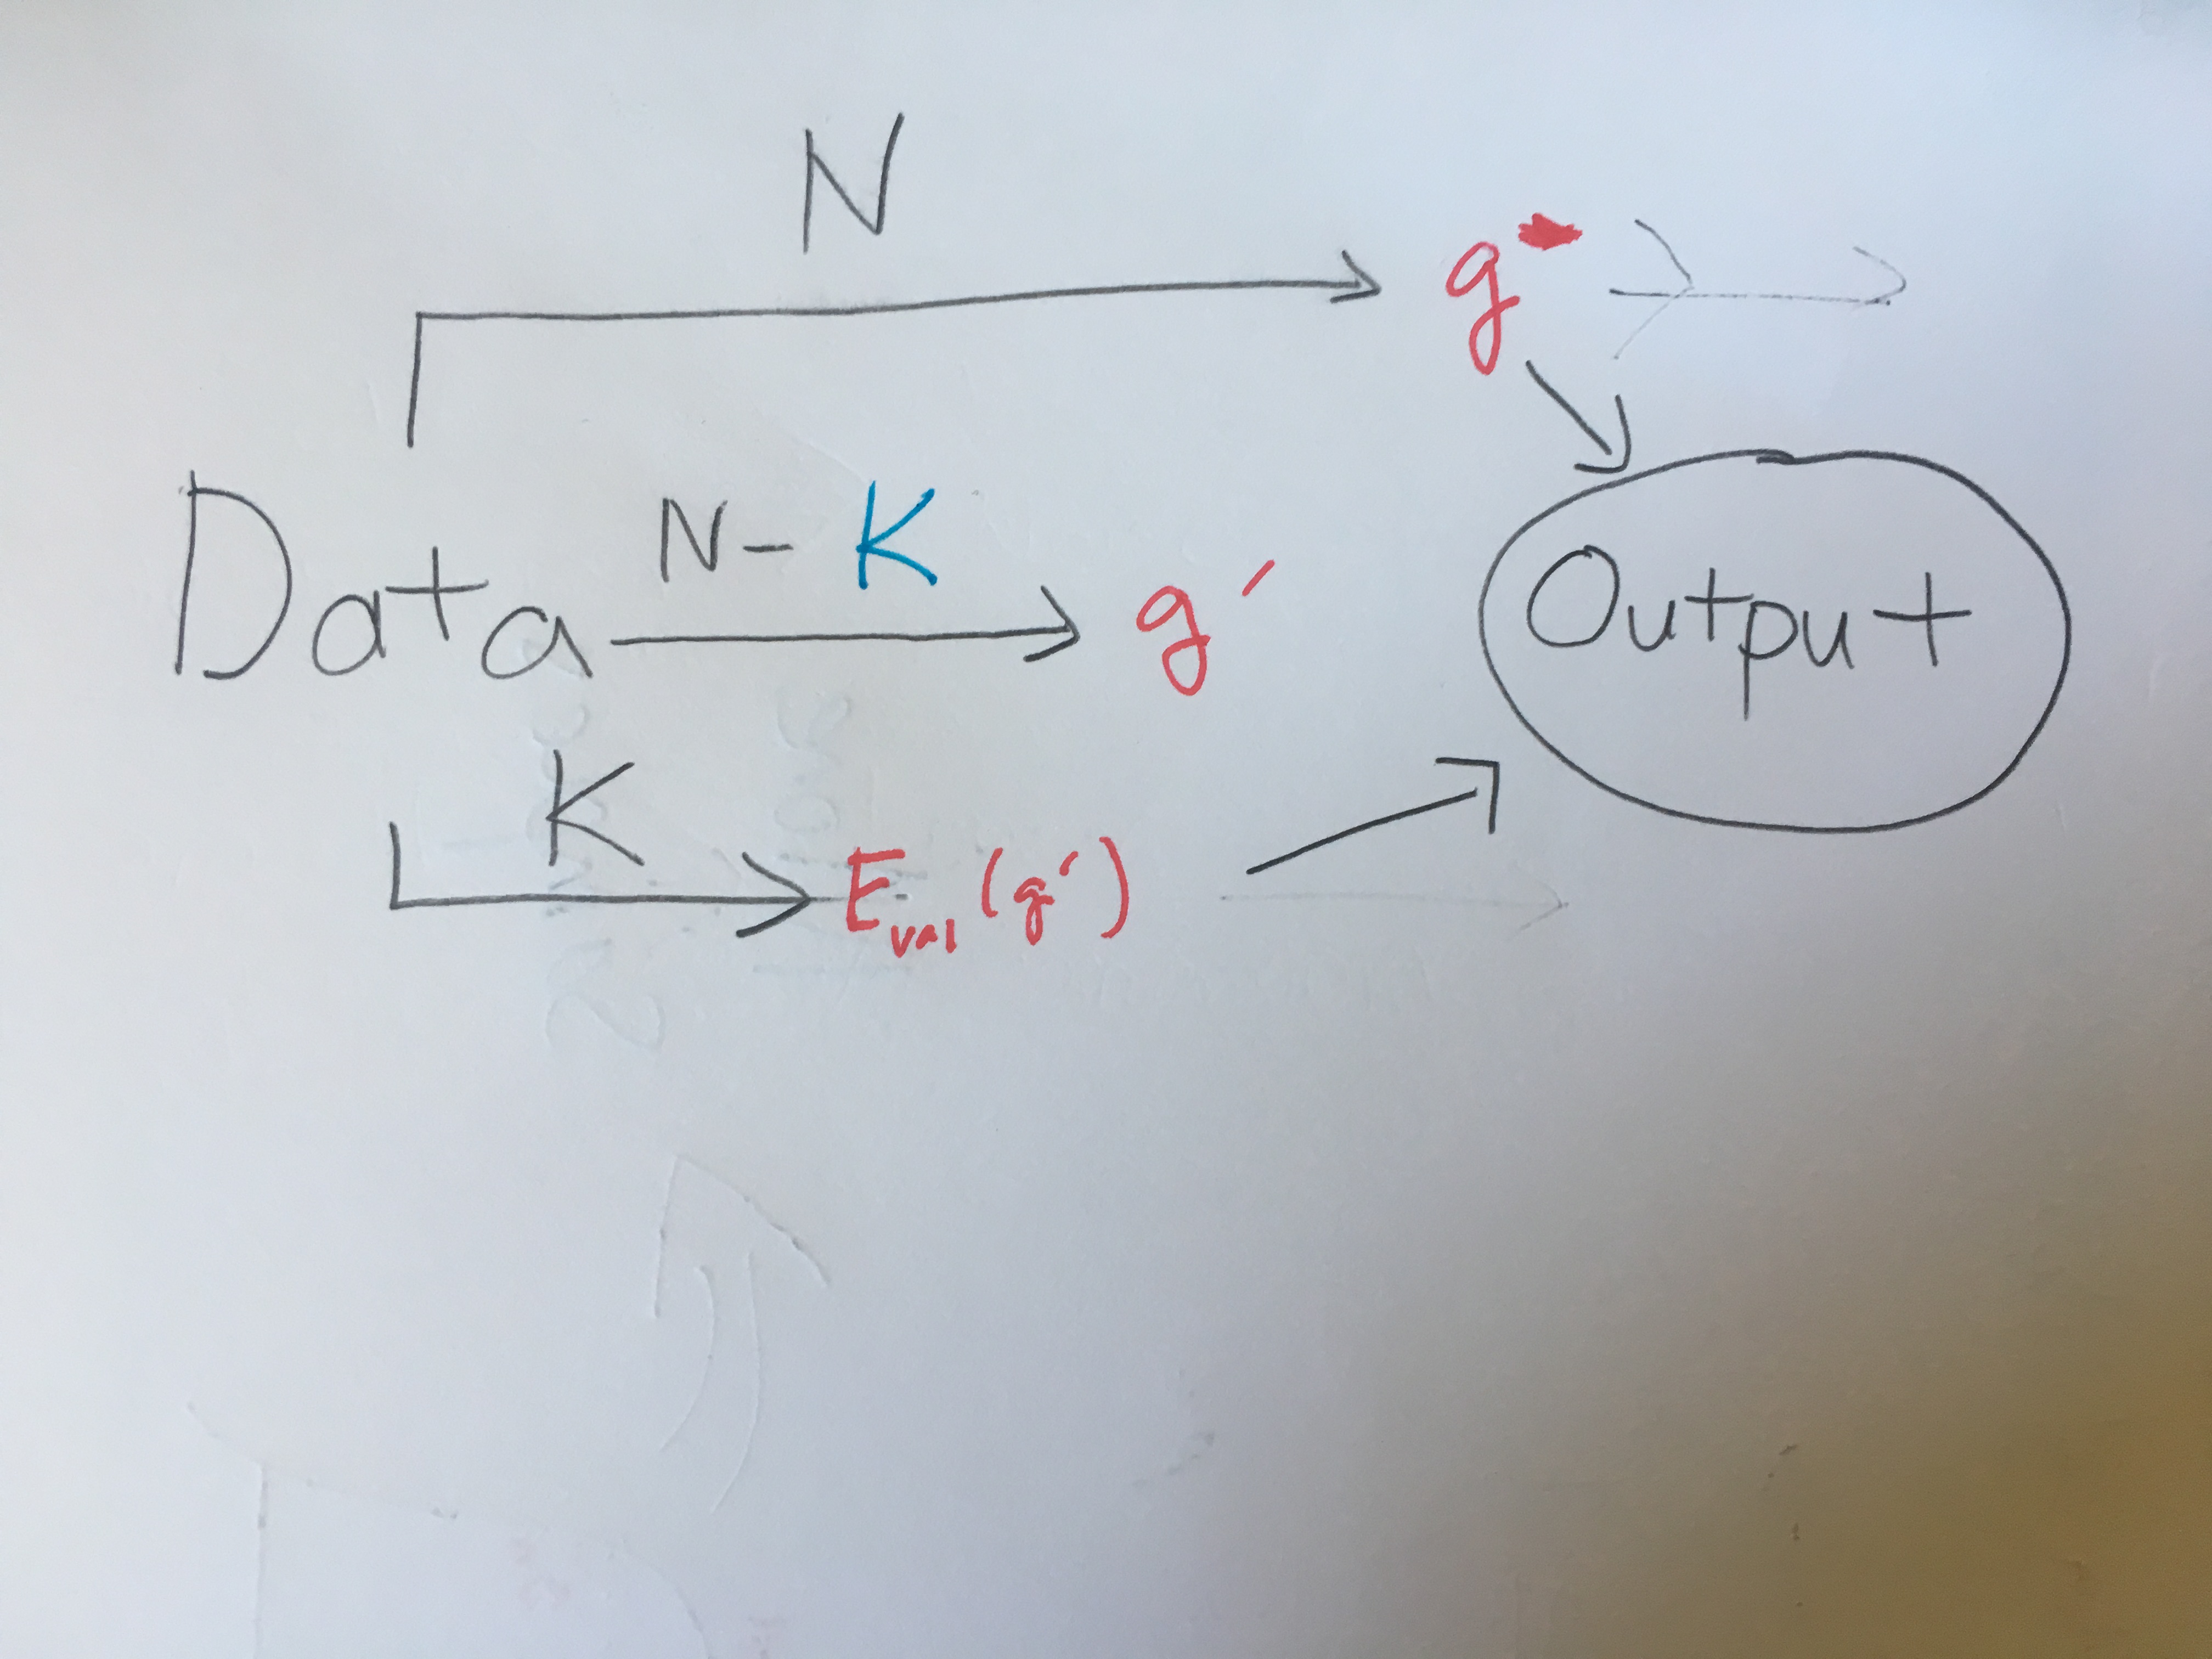 N
g
N- K
Data
g′
Output
K
E_val (g′)